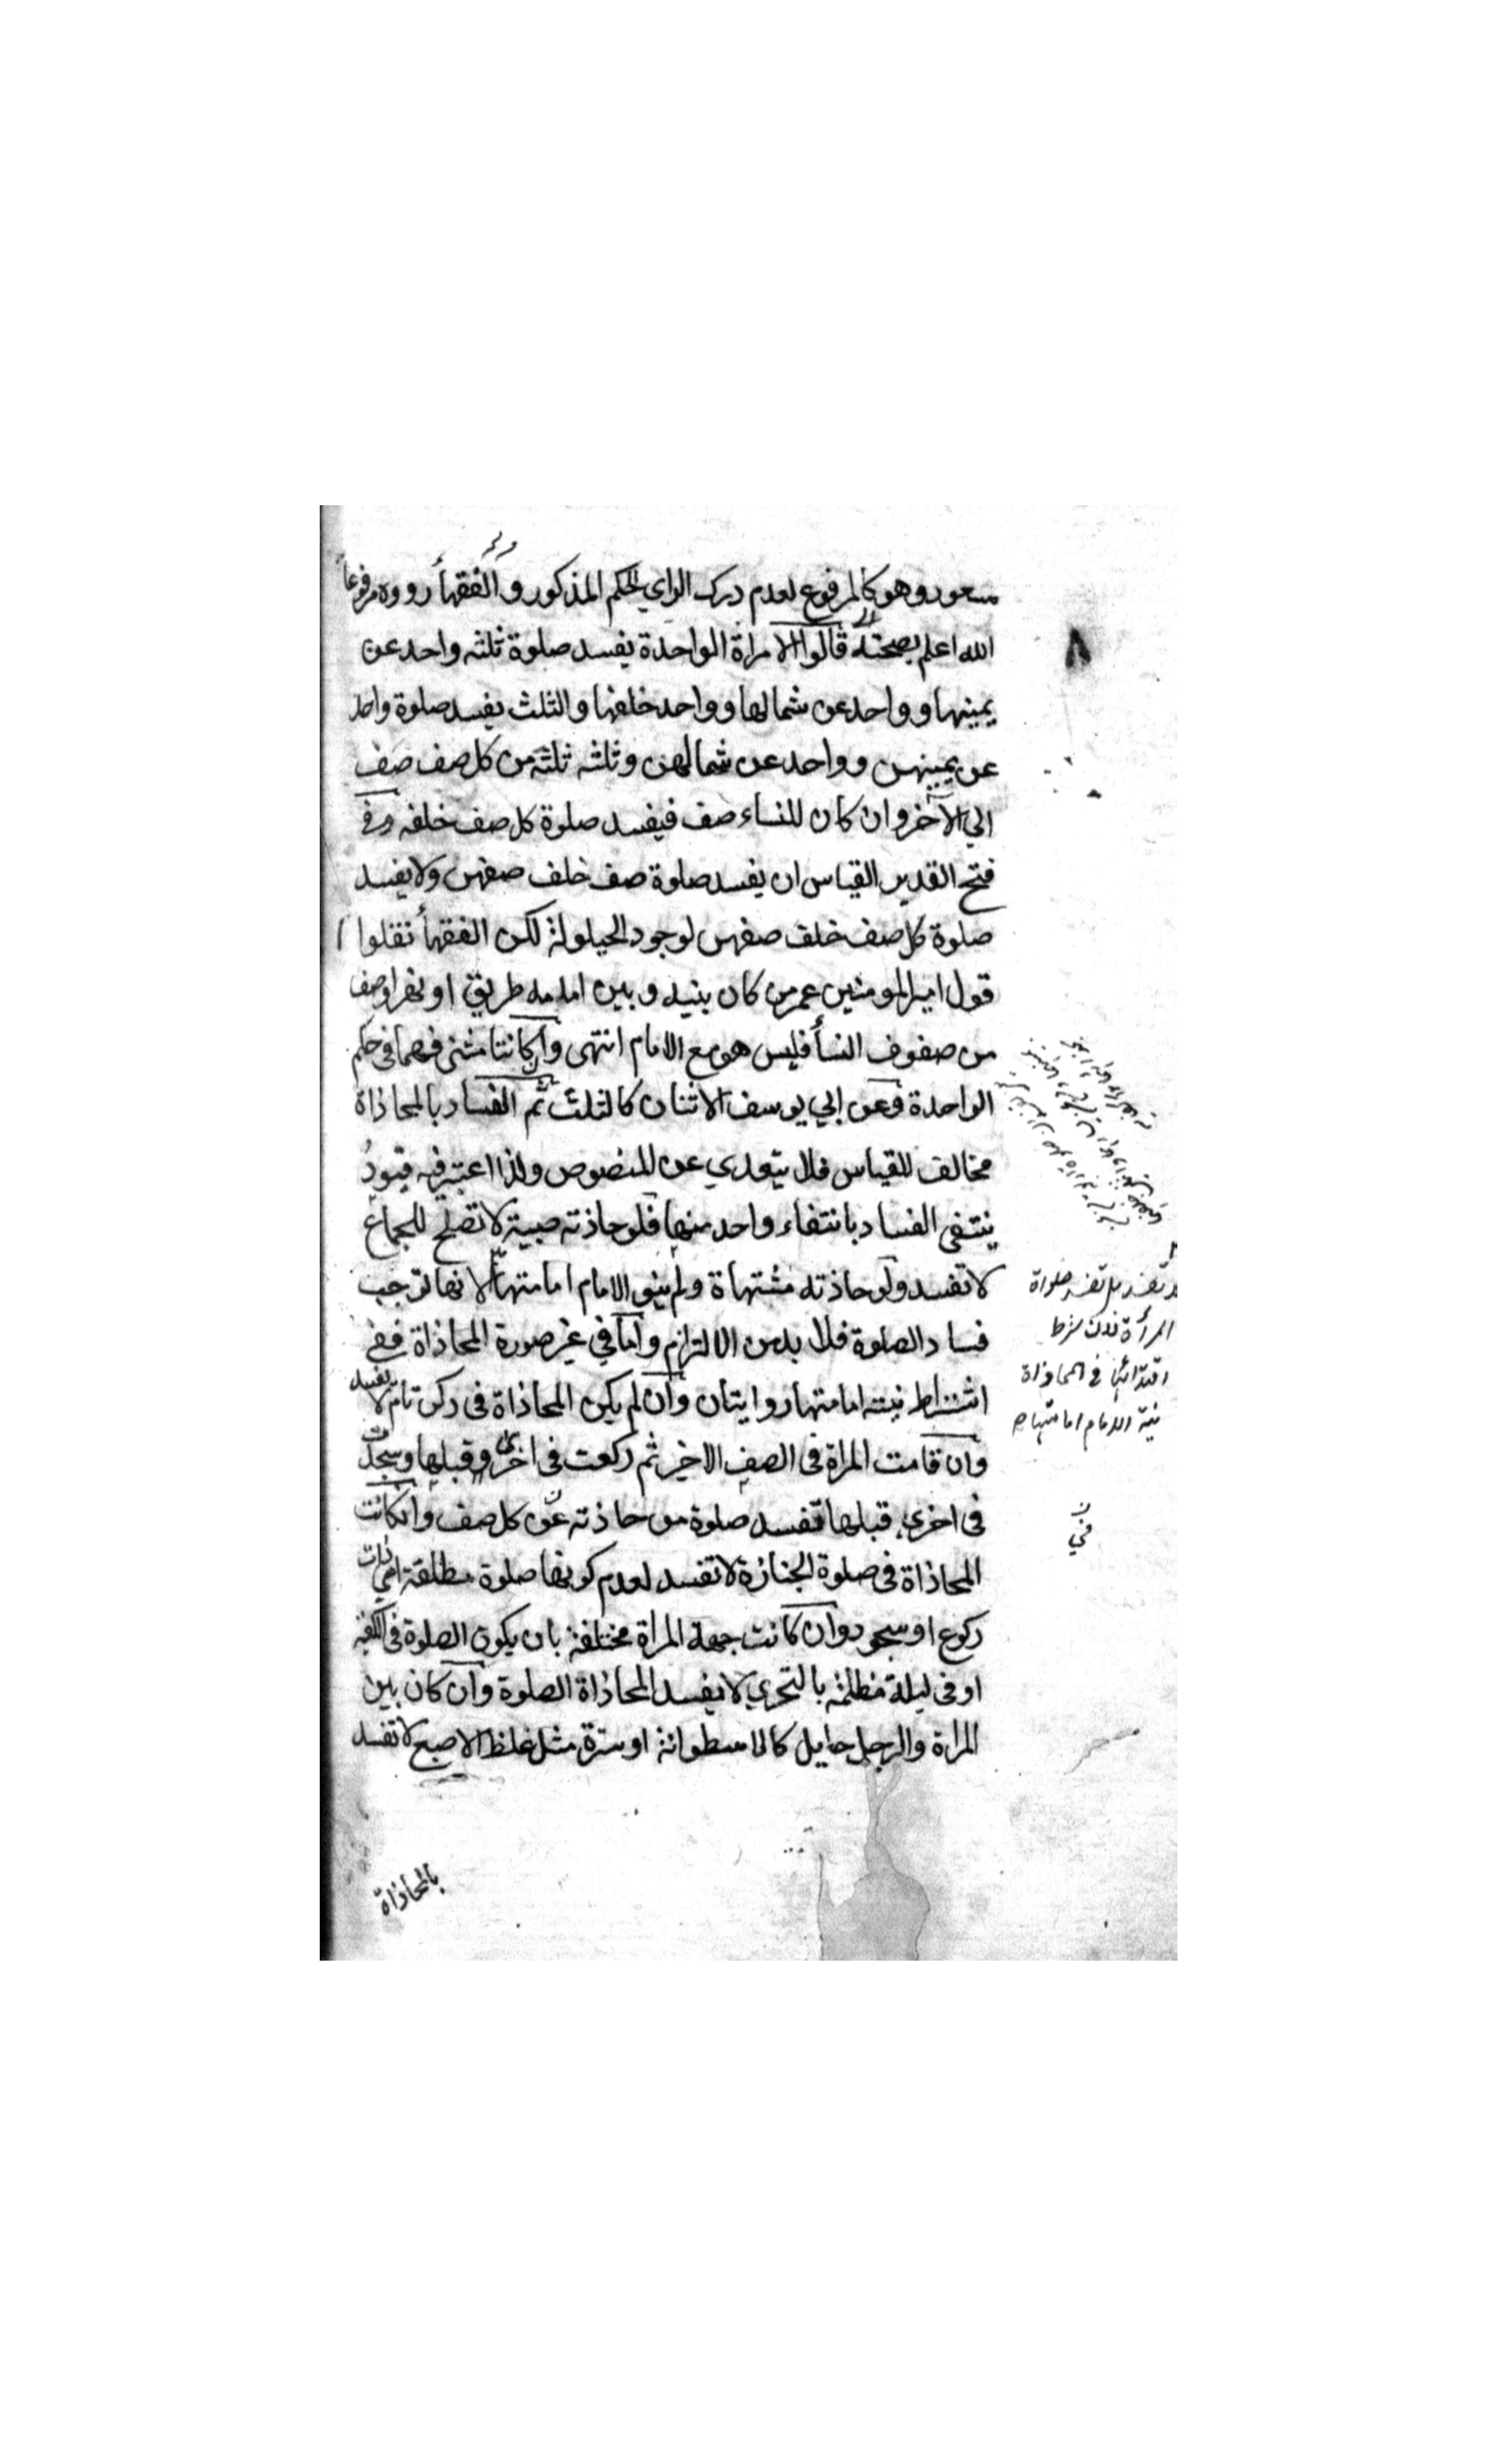 مسعود وهو كالمرفوع لعدم درك الراي الحكم المذكور والفقهأ رووه مرفوعاً
الله اعلم بصحته قالوا الامراة الواحدة يفسد صلوة ثلثه واحد عن
يمينها وواحد عن شمالها وواحد خلفها والثلث يفسد صلوة واحد
عن يمينهن وواحد عن شمالهن وثلثه ثلثه من كل صف صف
الي الآخر وان كان للنساء صف فيفسد صلوة كل صف خلفه وفي
فتح القدير القياس ان يفسد صلوة صف خلف صفهن ولا يفسد
صلوة كل صف خلف صفهن لوجود الحيلولة لكن الفقهأ نقلوا
قول امير المومنين عمر من كان بينه وبين امامه طريق او نهر او صف
من صفوف النسأ فليس هو مع الامام انتهى وان كانتا مثنى فهما في حكم
الواحدة وعن ابي يوسف الاثنان كالثلث ثم الفساد بالمحاذاة
مخالف للقياس فلا يتعدي عن المنصوص ولذا اعتبر فيه قيودٌ
ينتفى الفساد بانتفاء واحد منها فلو حاذته صبية لا تصلح للجماع
لا تفسد ولو حاذته مشتهاة ولم ينو الامام امامتها لا لانها توجب
فساد الصلوة فلا بد من الالتزام واما في غير صورة المحاذاة ففي
اشتراط نيته امامتها روايتان وان لم يكن المحاذاة في ركن تام لا يفسد
وان قامت المراة في الصف الاخير ثم ركعت في اخرى وقبلها وسجدت
في اخرى قبلها تفسد صلوة من حاذته عن كل صف وان كانت
المحاذاة في صلوة الجنازة لا تفسد لعدم كونها صلوة مطلقة اي ذات
ركوع او سجود وان كانت جهة المراة مختلفة بان يكون الصلوة في الكعبة
او في ليلة مظلمة بالتحري لا يفسد المحاذاة الصلوة وان كان بين
المراة والرجل حايل كالاسطوانة او سترة مثل غلظ الاصبع لا تفسد
بالمحاذاة
٨
تفسد بل تفسد صلواة
المرأة لان شرط
اقتدائها في المحاذاة
نية الامام امامتها